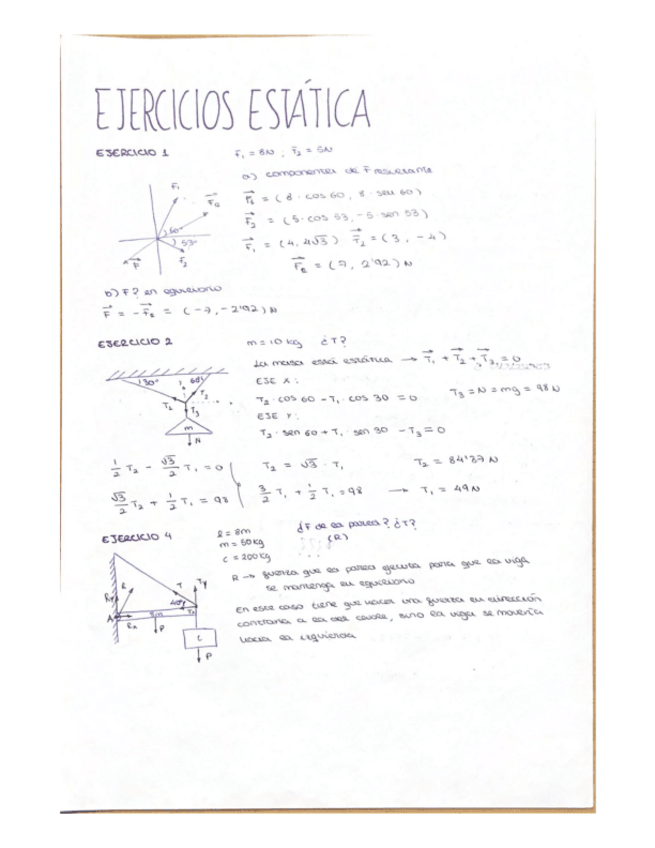 EJERCICIOS ESTÁTICA
EJERCICIO 1
F₁ = 8N ; F₂ = 5N
a) componentes de F resultante
F₁ = (8 · cos 60, 8 · sen 60)
F₂ = (5 · cos 53, -5 · sen 53)
F₁ = (4, 4√3) F₂ = (3, -4)
F_R = (7, 2'92) N
F₁
F_R
60°
53°
F₂
F
b) F? en equilibrio
F = -F_R = (-7, -2'92) N
EJERCICIO 2
m = 10 kg ¿T?
La masa está estática → T₁ + T₂ + T₃ = 0
EJE X:
T₂ · cos 60 - T₁ · cos 30 = 0
T₃ = N = mg = 98 N
EJE Y:
T₂ · sen 60 + T₁ · sen 30 - T₃ = 0
30°
60°
T₂
T₂
T₃
m
N
1/2 T₂ - √3/2 T₁ = 0
T₂ = √3 · T₁
T₂ = 84'87 N
√3/2 T₂ + 1/2 T₁ = 98
3/2 T₁ + 1/2 T₁ = 98 → T₁ = 49 N
EJERCICIO 4
l = 8m
m = 50kg
c = 200kg
¿F de la pared? ¿T?
(R)
R → fuerza que la pared ejecuta para que la viga
se mantenga en equilibrio
En este caso tiene que hacer una fuerza en dirección
contraria a la del cable, sino la viga se movería
hacia la izquierda
R
T
Ty
40°
A
8m
Rx
P
c
P